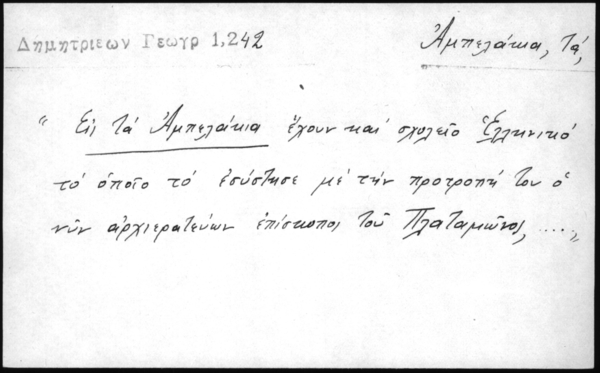 Δημητριεων Γεωγρ 1,242
Ἀμπελάκια, τά,
" Εἰς τά Ἀμπελάκια ἔχουν καί σχολεῖο Ἑλληνικό
τό ὁποῖο τό ἐσύστησε μέ τήν προτροπή του ὁ
νῦν ἀρχιερατεύων ἐπίσκοπος τοῦ Πλαταμῶνος, ....,,